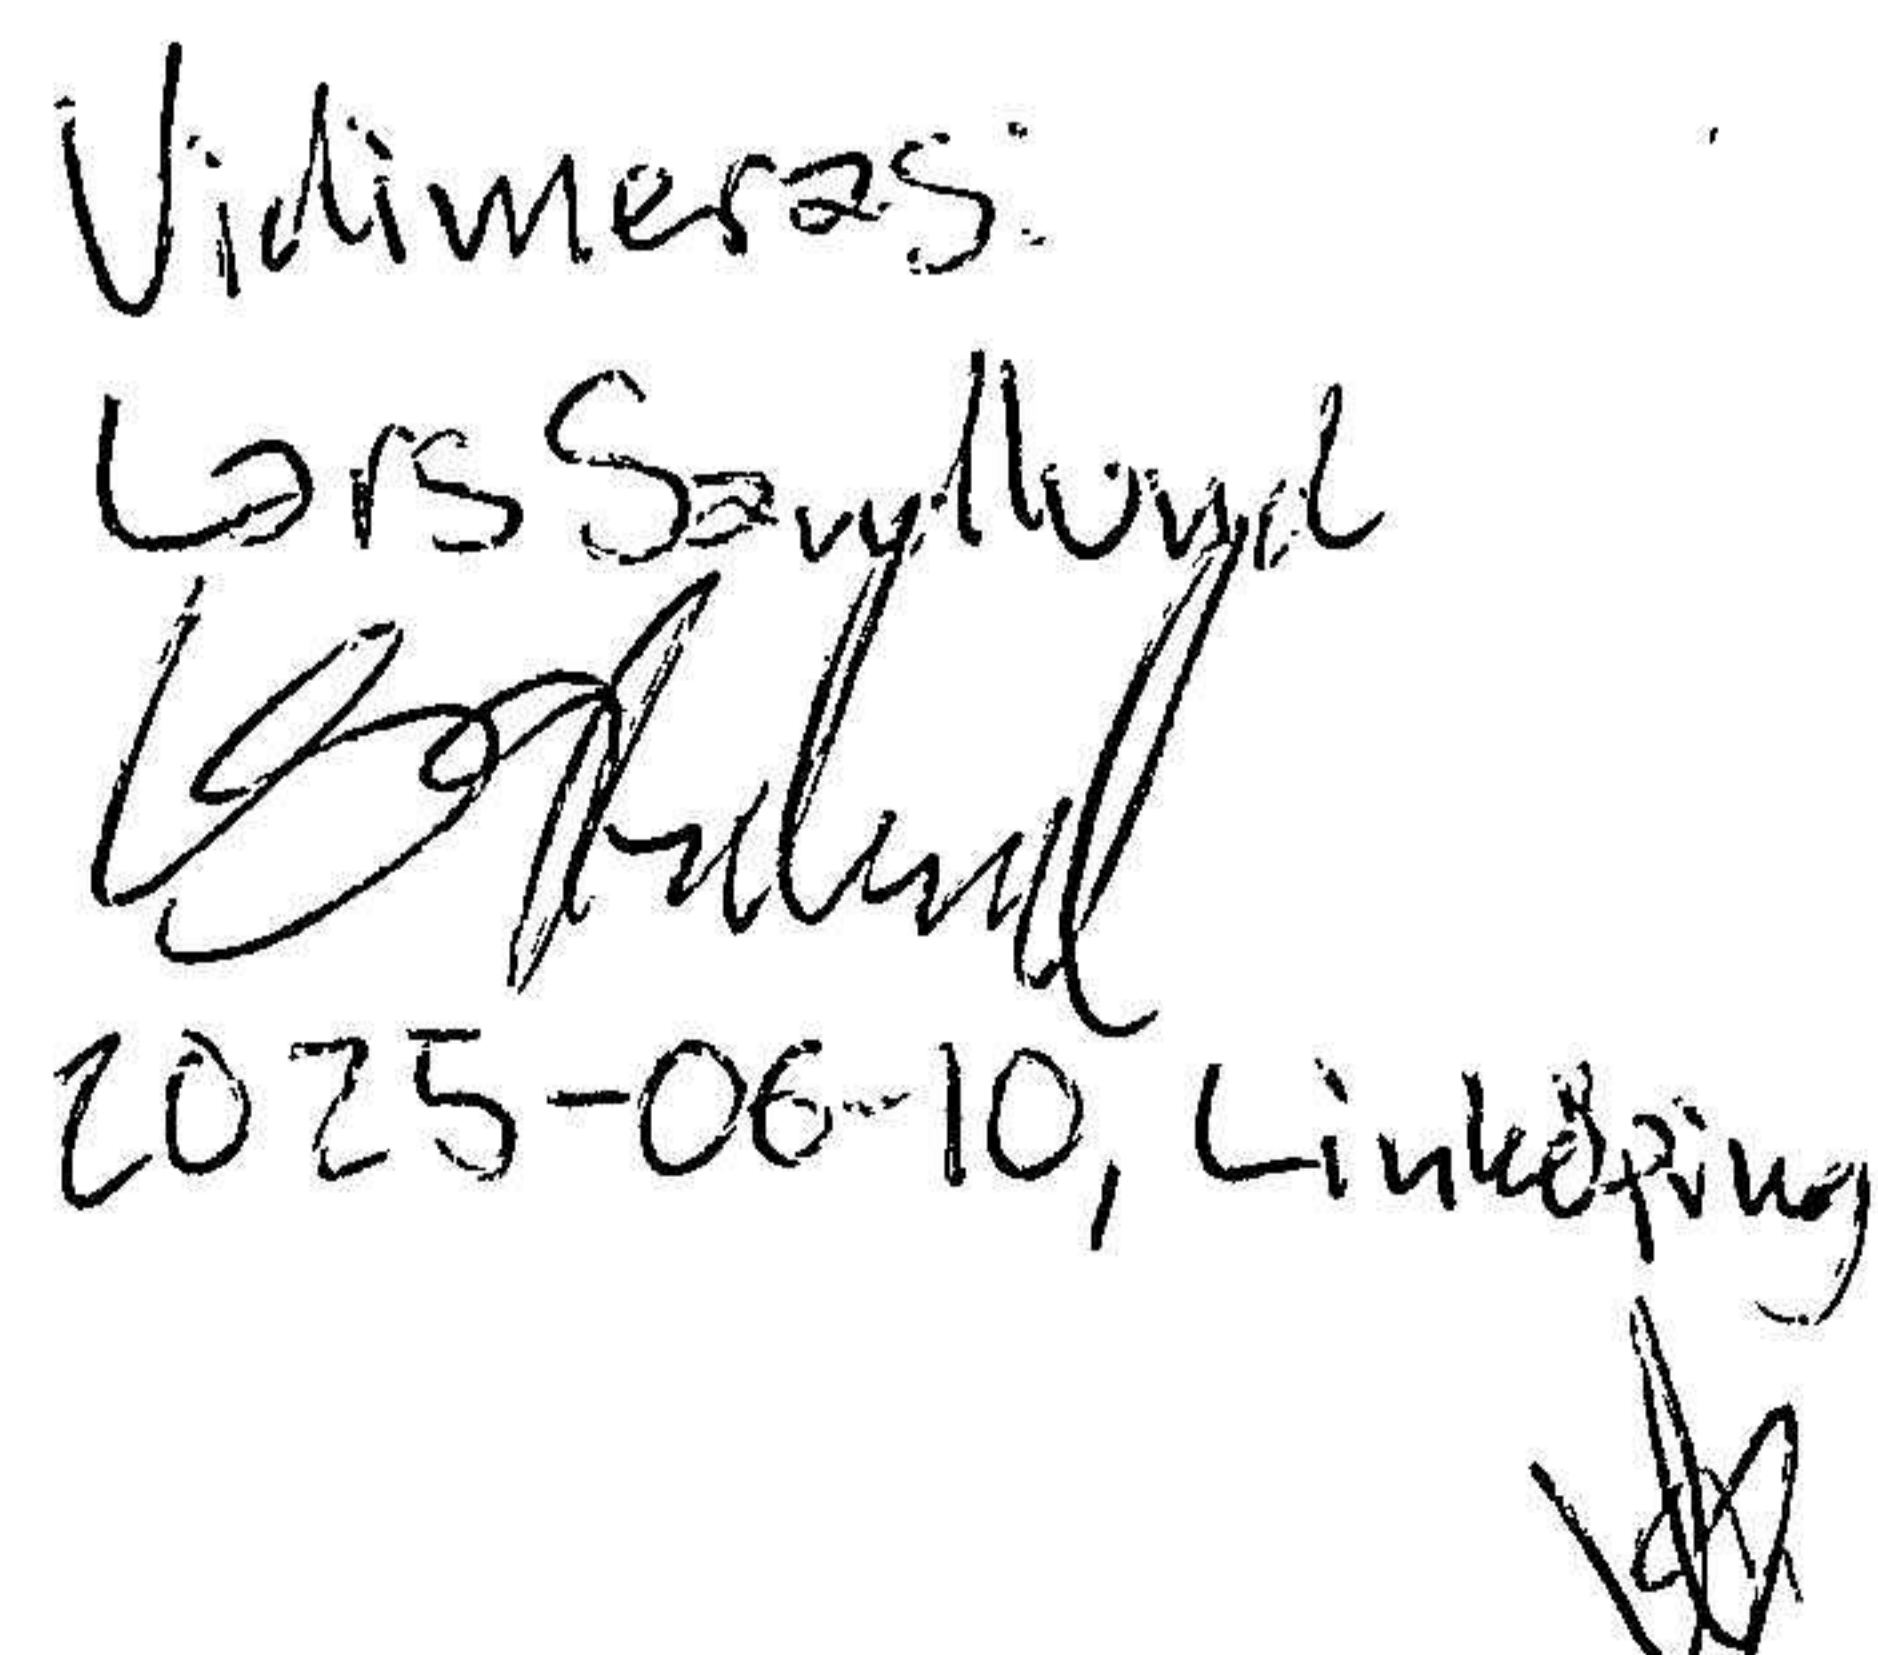 Vidimeras:
Lars Sandlund
2025-06-10, Linköping